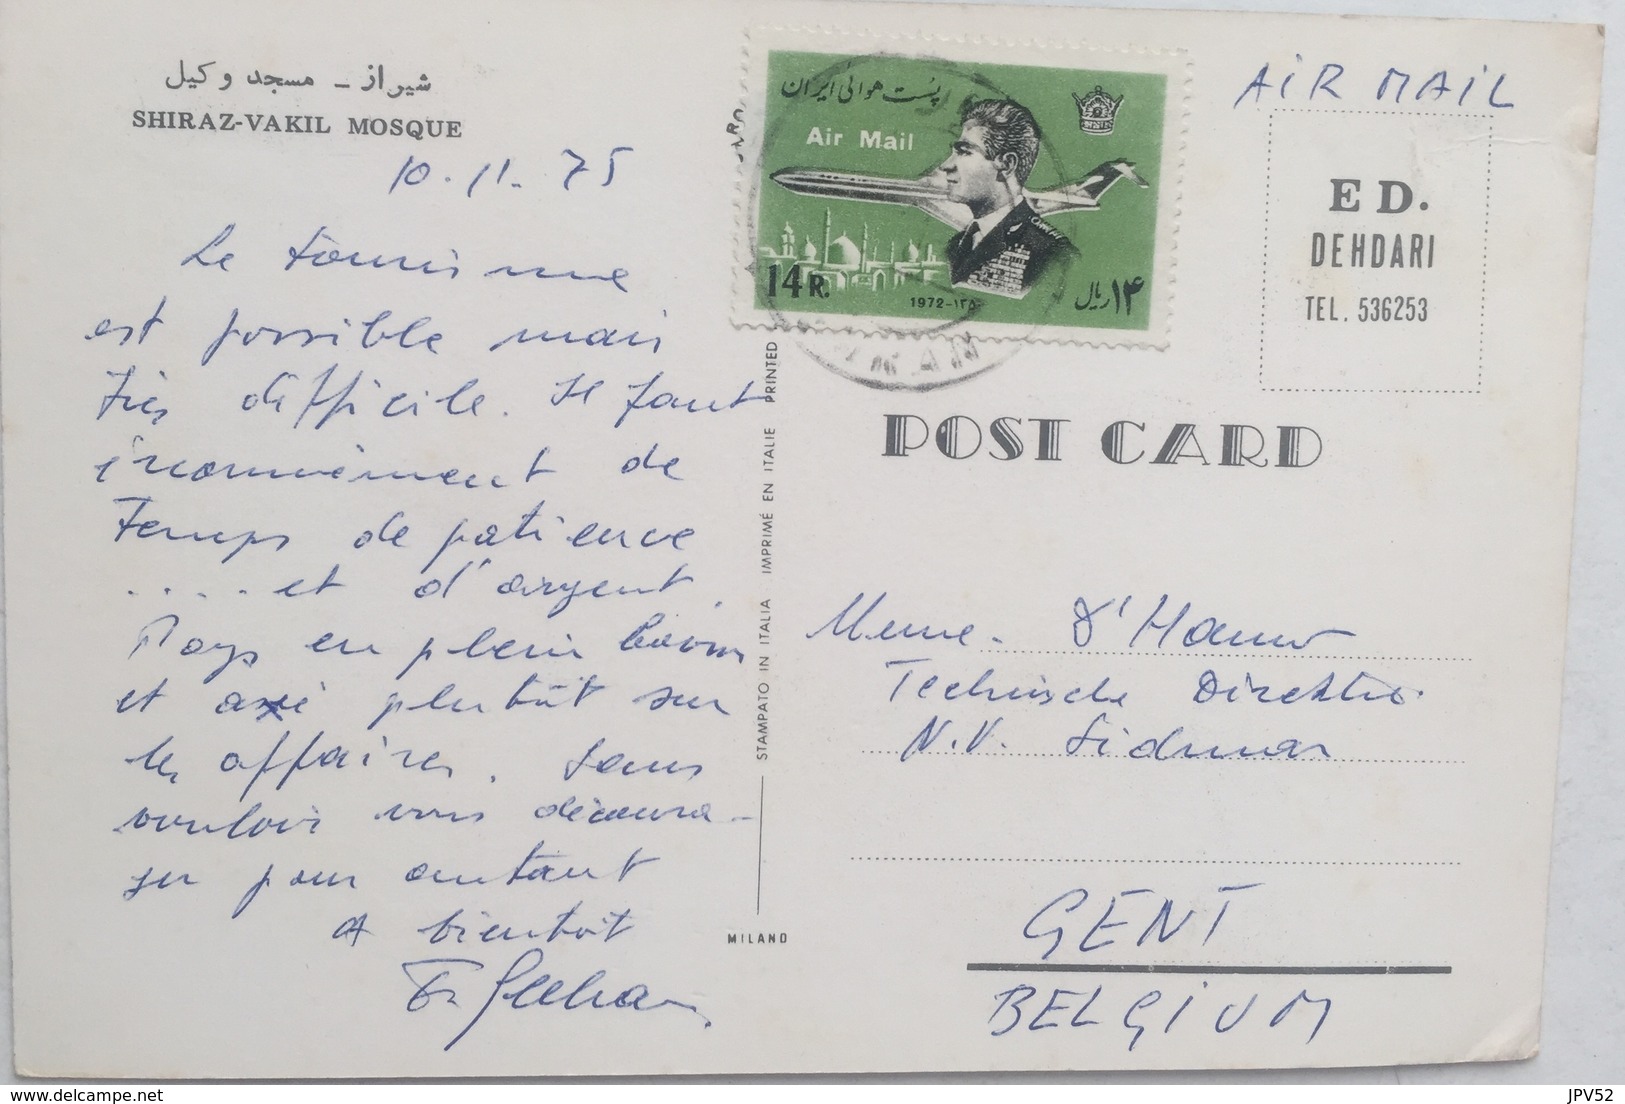 شیراز - مسجد وکیل
SHIRAZ-VAKIL MOSQUE
10.11.75
Le tourisme
est possible mais
très difficile. Il faut
énormément de
temps de patience
.... et d'argent.
Pays en plein boom
et axé plutôt sur
les affaires. Sans
vouloir vous découra-
ger pour autant
A bientôt
پست هوائی ایران
Air Mail
14 R.
1972-۱۳۵۰
۱۴ ریال
AiR MAIL
ED.
DEHDARI
TEL. 536253
POST CARD
STAMPATO IN ITALIA IMPRIMÉ EN ITALIE PRINTED
MILANO
Mme. D'Hanw
Technische Direktie
N.V. Sidmar
GENT
BELGIUM
JPV52